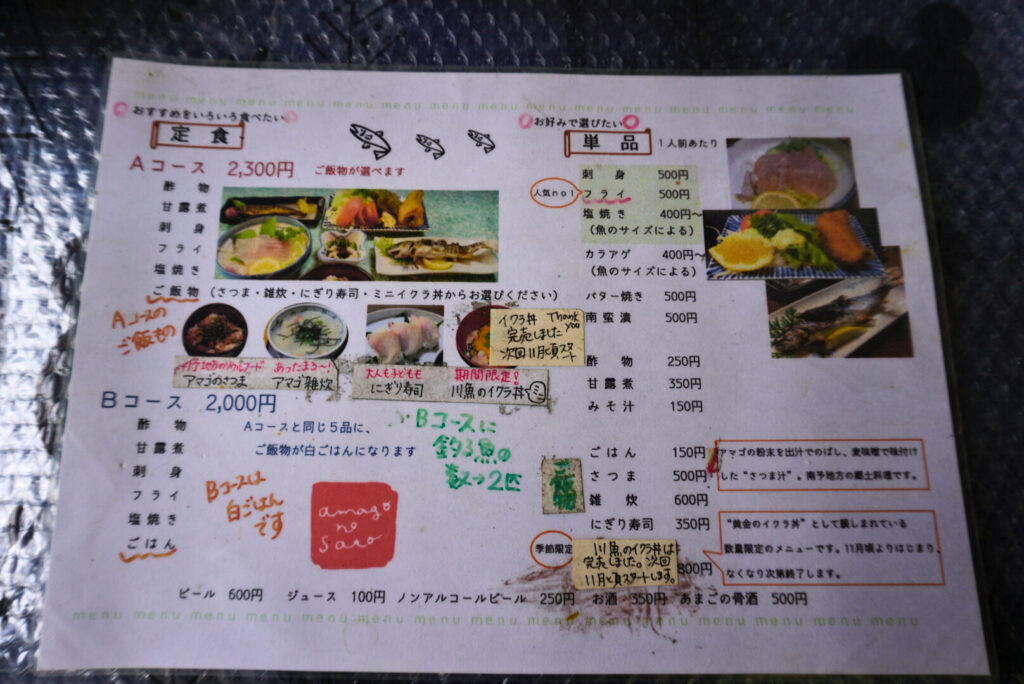 menu menu menu menu menu menu menu menu menu menu menu menu menu menu menu menu
おすすめをいろいろ食べたい
定食
Aコース 2,300円 ご飯物が選べます
酢物
甘露煮
刺身
フライ
塩焼き
ご飯物（さつま・雑炊・にぎり寿司・ミニイクラ丼からお選びください）
Aコースの
ご飯もの
イクラ丼 Thank you
完売しました
次回11月頃スタート
アマゴのさつま
あったまる〜!
アマゴ雑炊
大人も子どもも
にぎり寿司
期間限定!
川魚のイクラ丼 ミニ
Bコース 2,000円
酢物
甘露煮
刺身
フライ
塩焼き
ごはん
Aコースと同じ5品に、
ご飯物が白ごはんになります
Bコースは
白ごはん
です
Bコースに
釣る魚の
数→2匹
amago
no
sato
お好みで選びたい
単品 1人前あたり
刺身 500円
人気no1
フライ 500円
塩焼き 400円〜
（魚のサイズによる）
カラアゲ 400円〜
（魚のサイズによる）
バター焼き 500円
南蛮漬 500円
酢物 250円
甘露煮 350円
みそ汁 150円
ご飯物
ごはん 150円
さつま 500円
雑炊 600円
にぎり寿司 350円
アマゴの粉末を出汁でのばし、麦味噌で味付け
した“さつま汁”。南予地方の郷土料理です。
季節限定
川魚のイクラ丼は
完売しました。次回
11月頃スタートします。
800円
“黄金のイクラ丼”として親しまれている
数量限定のメニューです。11月頃よりはじまり、
なくなり次第終了します。
ビール 600円 ジュース 100円 ノンアルコールビール 250円 お酒 350円 あまごの骨酒 500円
menu menu menu menu menu menu menu menu menu menu menu menu menu menu menu menu